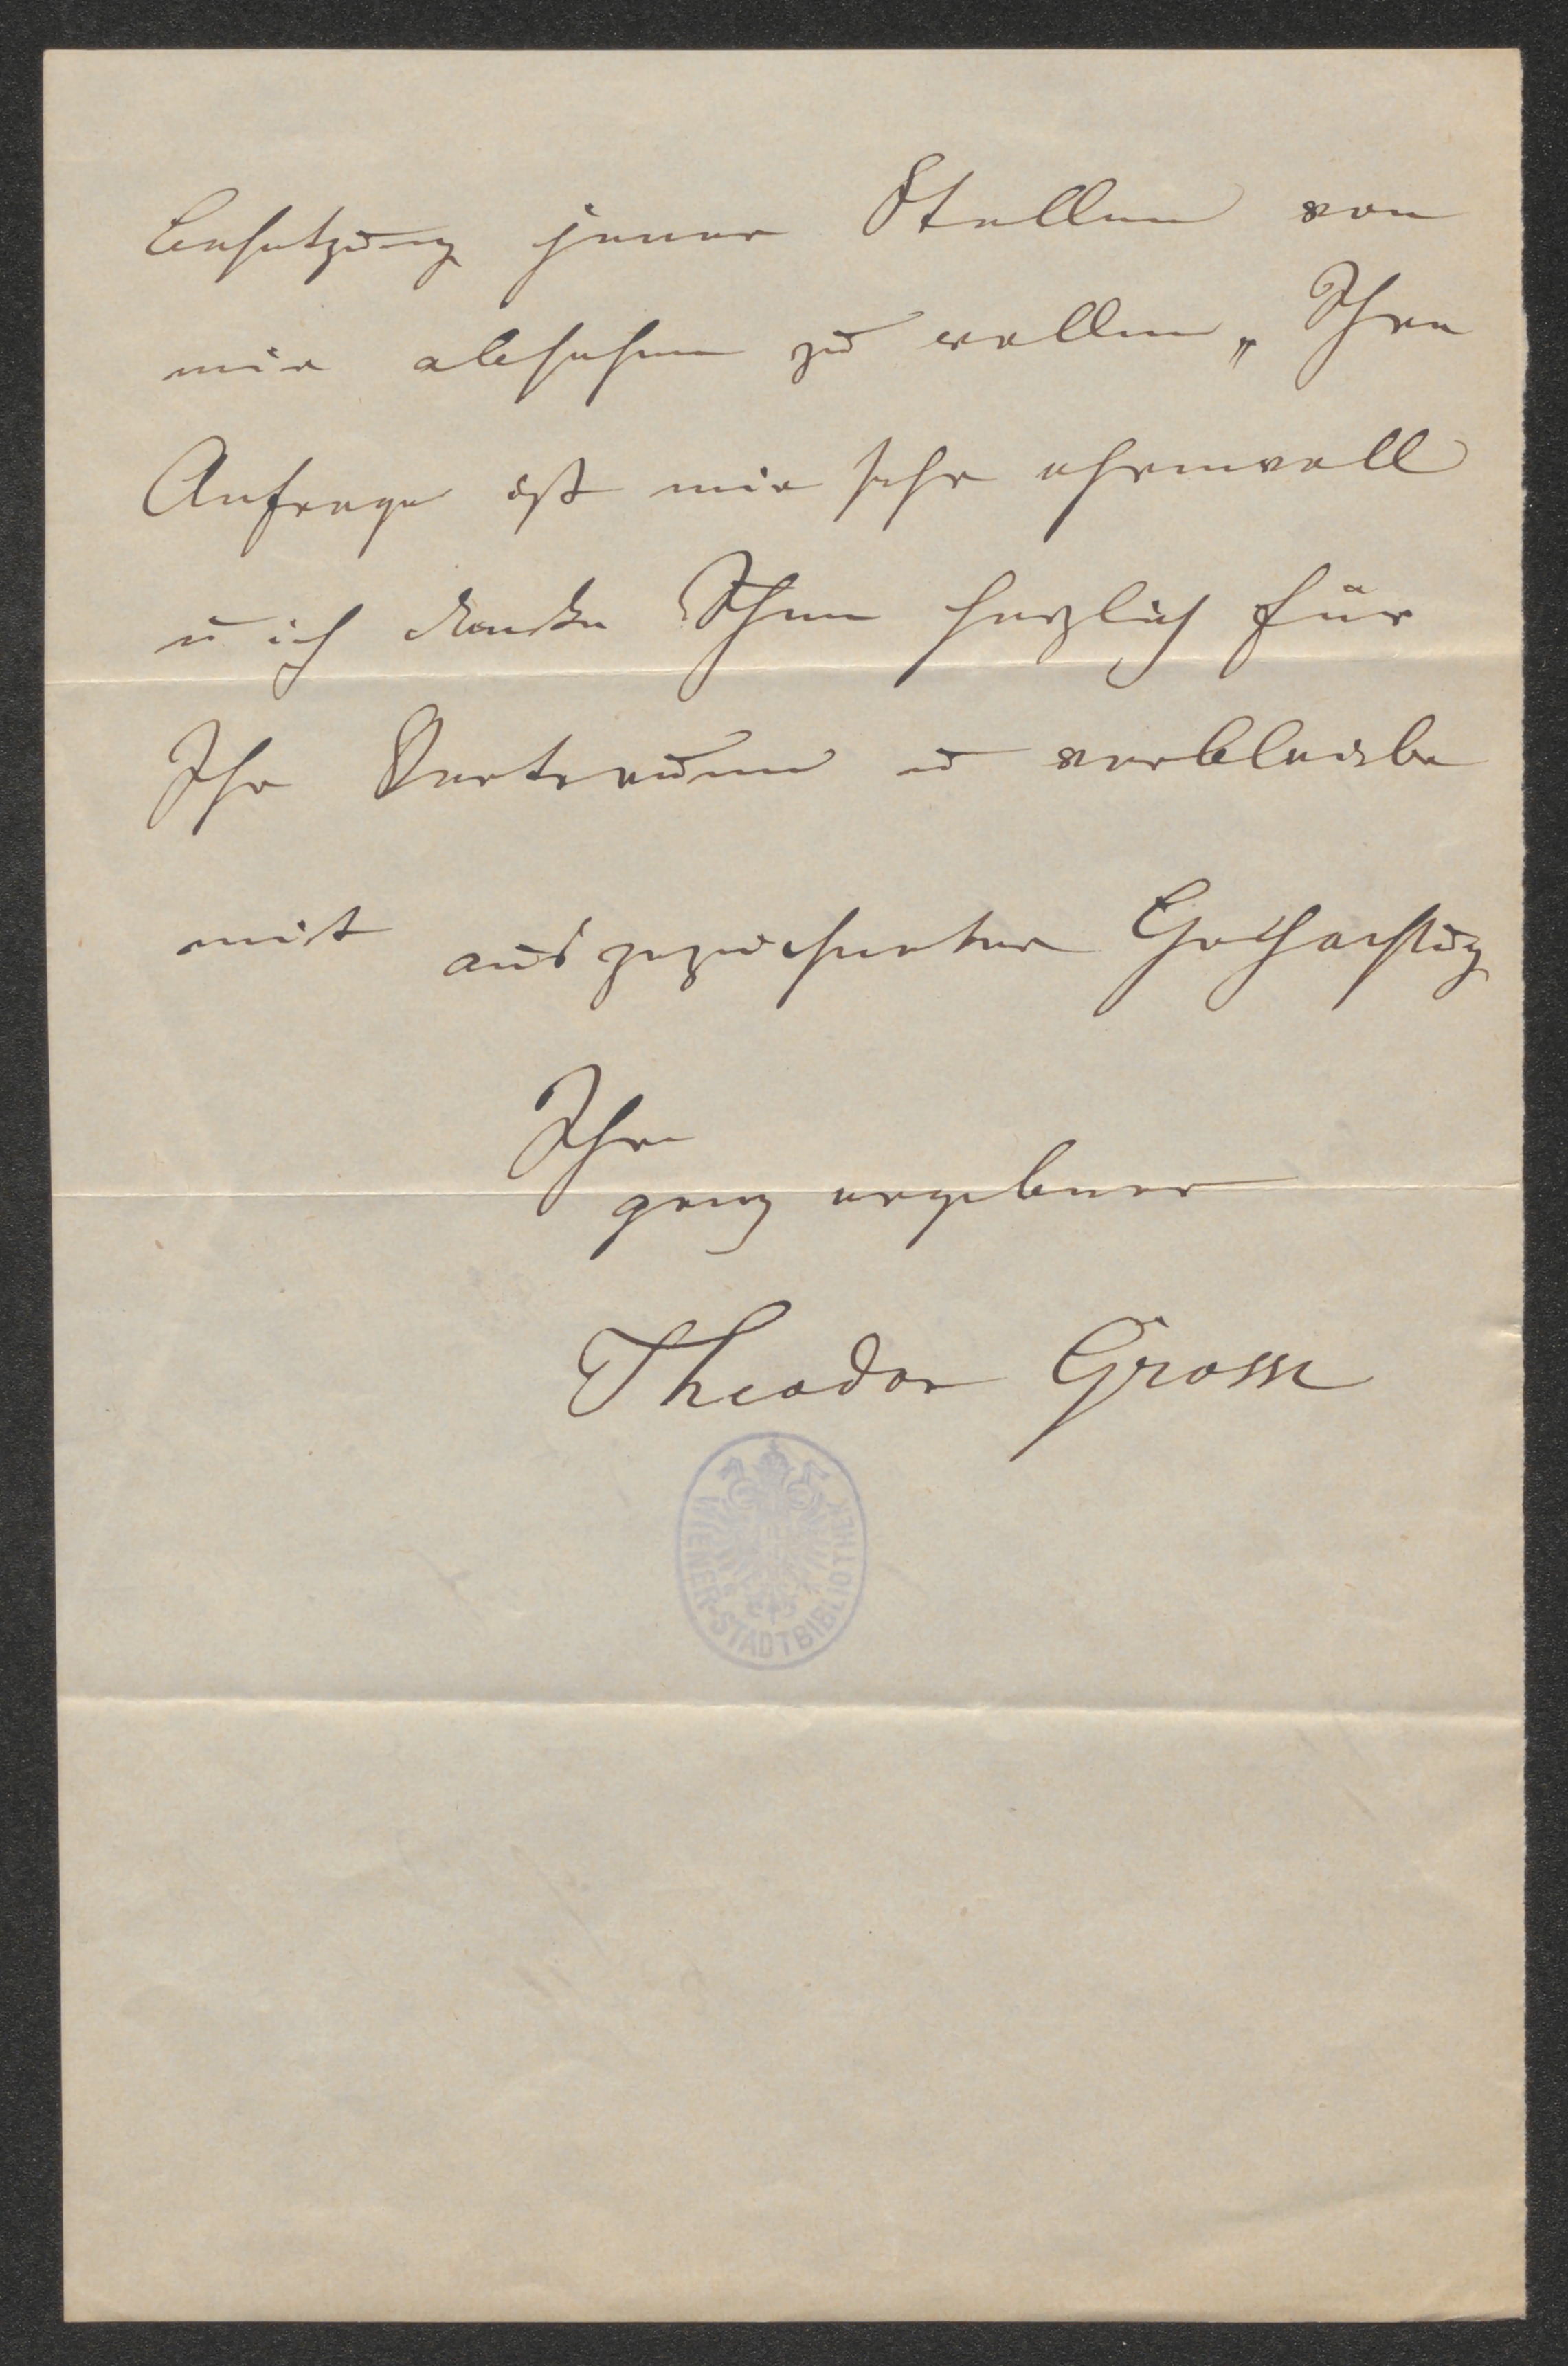 Besetzung jener Stellen von
mir absehen zu wollen, Ihre
Anfrage ist mir sehr ehrenvoll
u ich danke Ihnen herzlich für
Ihr Vertrauen u verbleibe
mit ausgezeichneter Hochachtung
Ihr
ganz ergebener
Theodor Grosse
WIENER-STADTBIBLIOTHEK